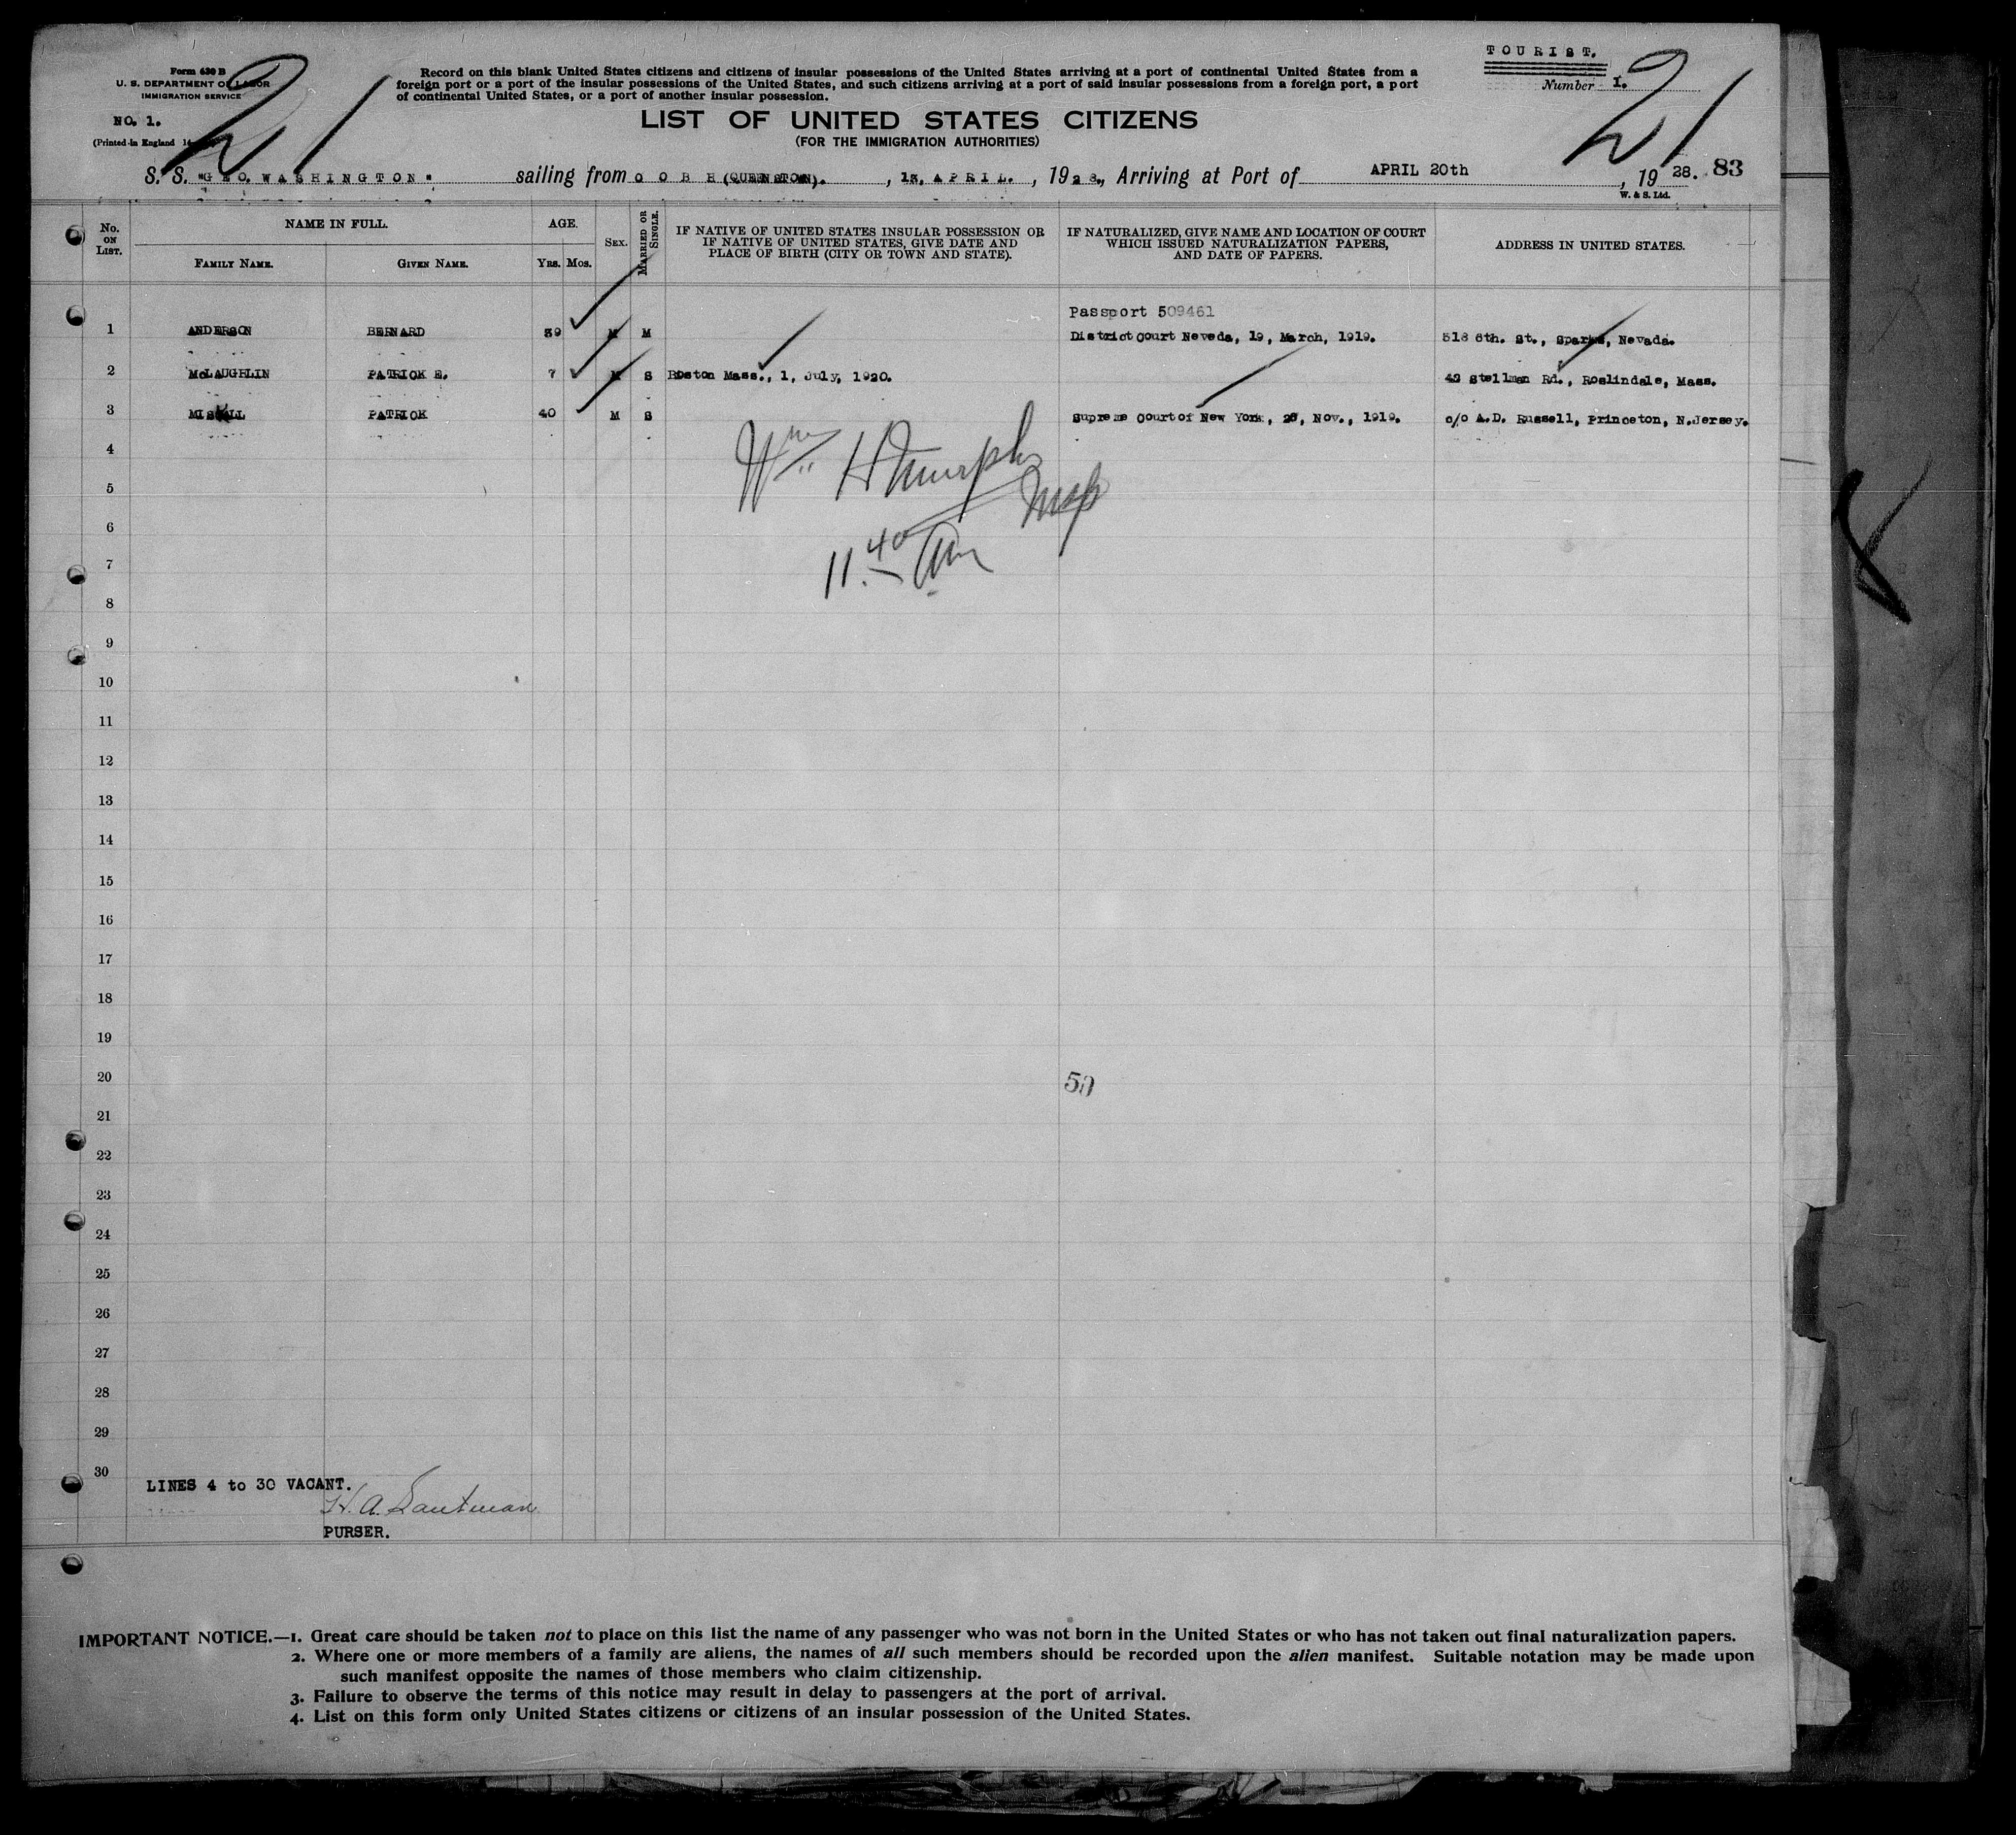 TOURIST.
Form 630 B
U. S. DEPARTMENT OF LABOR
IMMIGRATION SERVICE
NO. 1.
(Printed in England
21
Record on this blank United States citizens and citizens of insular possessions of the United States arriving at a port of continental United States from a
foreign port or a port of the insular possessions of the United States, and such citizens arriving at a port of said insular possessions from a foreign port, a port
of continental United States, or a port of another insular possession.
Number 1.
21
LIST OF UNITED STATES CITIZENS
(FOR THE IMMIGRATION AUTHORITIES)
S. S. "GEO. WASHINGTON" sailing from COBH (QUEENSTOWN). , 13, APRIL. , 1928., Arriving at Port of APRIL 20th , 1928. 83
W. & S. Ltd.
No. ON LIST.
NAME IN FULL.
FAMILY NAME.
GIVEN NAME.
AGE.
YRS. MOS.
SEX.
MARRIED OR SINGLE.
IF NATIVE OF UNITED STATES INSULAR POSSESSION OR
IF NATIVE OF UNITED STATES, GIVE DATE AND
PLACE OF BIRTH (CITY OR TOWN AND STATE).
IF NATURALIZED, GIVE NAME AND LOCATION OF COURT
WHICH ISSUED NATURALIZATION PAPERS,
AND DATE OF PAPERS.
ADDRESS IN UNITED STATES.
Passport 509461
1 ANDERSON BERNARD 39 M M District Court Neveda, 19, March, 1919. 518 8th. St., Sparks, Nevada.
2 McLAUGHLIN PATRICK E. 7 M S Boston Mass., 1, July, 1920. 42 Stellman Rd., Roslindale, Mass.
3 PATRICK 40 M S Supreme Court of New York, Nov., 1919. c/o A.D. Russell, Princeton, N.Jersey.
4
Wm H Murphy
5
Insp
6
11.40 AM
7
8
9
10
11
12
13
14
15
16
17
18
19
20
50
21
22
23
24
25
26
27
28
29
30
LINES 4 to 30 VACANT.
H. A. Lautman
PURSER.
IMPORTANT NOTICE.—1. Great care should be taken not to place on this list the name of any passenger who was not born in the United States or who has not taken out final naturalization papers.
2. Where one or more members of a family are aliens, the names of all such members should be recorded upon the alien manifest. Suitable notation may be made upon
such manifest opposite the names of those members who claim citizenship.
3. Failure to observe the terms of this notice may result in delay to passengers at the port of arrival.
4. List on this form only United States citizens or citizens of an insular possession of the United States.